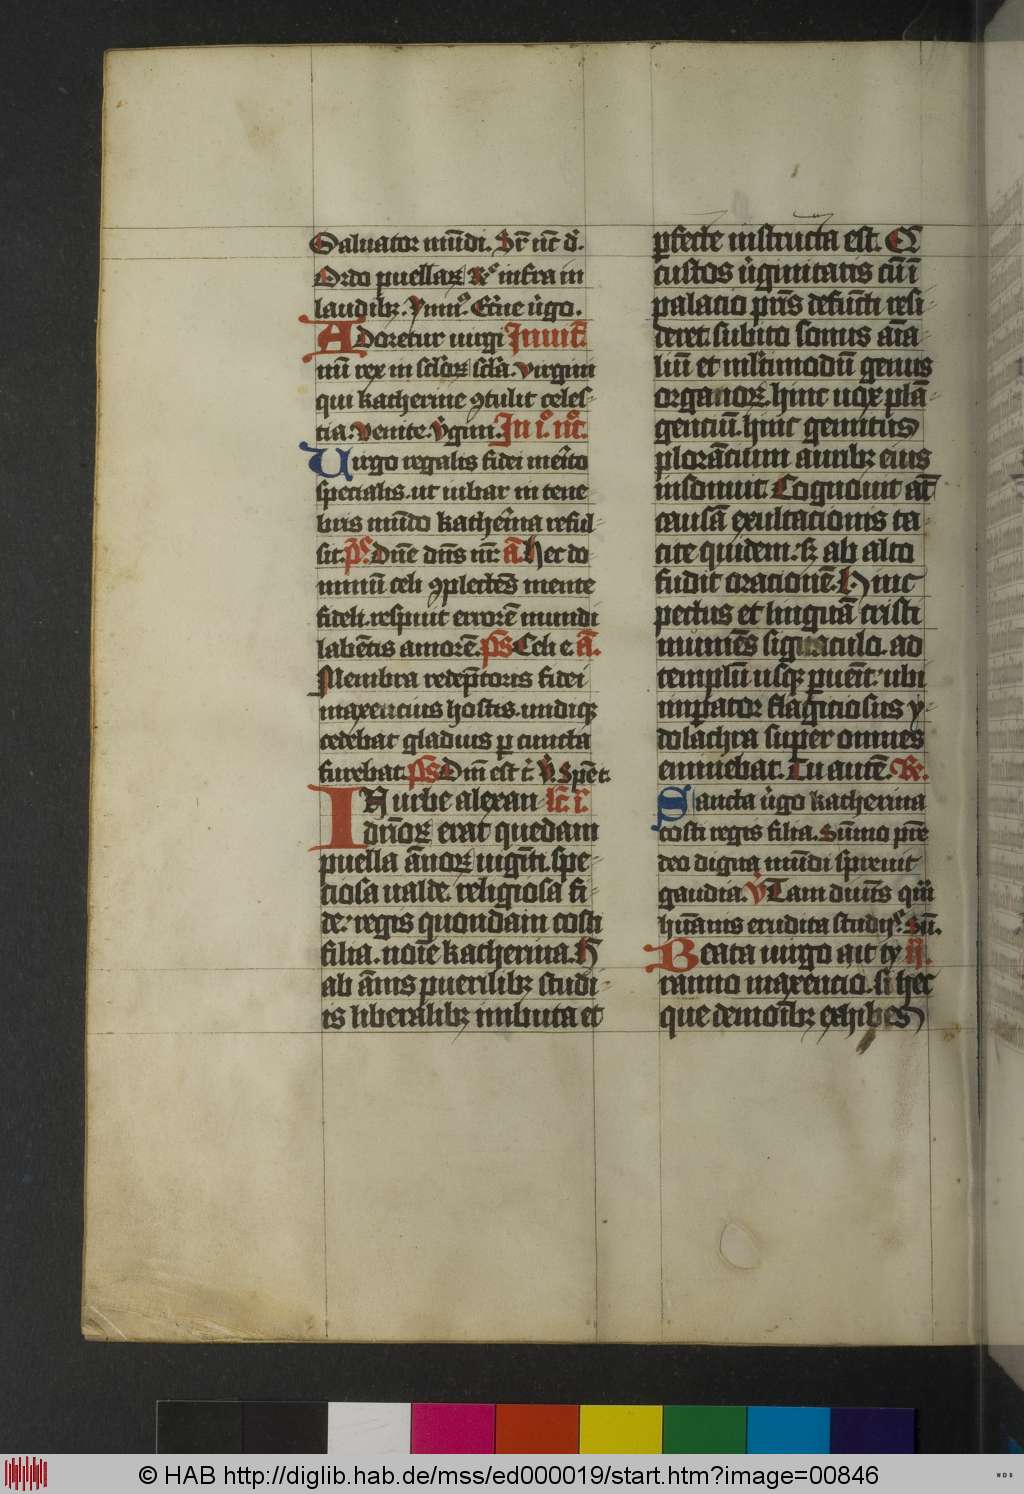 Saluator mūdi. Sr̄ nr̄ d̓.
Ordo puellaꝝ R̓ infra in
laudibꝫ. ymnꝰ. Et̓ne v̓go.
Adoretur uirgi Inuit̄.
nū rex in sclo̓ꝝ scl̓a. virgini
qui katherine ꝯtulit celes-
tia. Venite. v̓gini. In i.° nr̄.
Uirgo regalis fidei mei̓to
specialis. ut iubar in tene
bris mūdo kathei̓na reful-
sit. p̄s Dn̄e dn̄s nr̄. a̅ Hec do
minū celi ꝯplectēs mente
fideli. respuit errorē mundi
labētis amorē. ps Celi e. a̅.
Membra redēptoris fidei
maxencius hostis. undiqꝫ
cedebat gladius p cuncta
furebat. ps Dn̄i est t̓. v̓. Spēt.
IN urbe alexan- lc̄. i.
drīoꝝ erat quedam
puella ānoꝝ uigīti. spe-
ciosa ualde. religiosa fi-
de. regis quondam costi
filia. noīe katherina. H
ab ānis puerilibꝫ studi-
is liberalibꝫ imbuta et
ꝑfecte instructa est. Q̄
custos v̓ginitatis cū ī
palacio pr̄is defūcti resi-
deret. subito sonus aīa-
liū et īstr̄imodū genus
organoꝝ. hinc uox plā-
genciū. hinc gemitus
plorācium auribꝫ eius
insonuit. Cognouit at̄
causā exultacionis ta-
cite quidem. sꝫ ab alto
fudit oracionē. Hinc
pectus et linguā cristi
muniēs signaculo. ad
templū usqꝫ ꝑuēit. ubi
imꝑator flagiciosus y-
dolachra super omnes
eminebat. Tu autē. R̓.
Sancta v̓go katherina
costi regis filia. Sūmo pr̄e
deo digna mūdi spreuit
gaudia. v̓ Tam diuīs qm̄
hūanis erudita studijs. Sū.
Beata uirgo ait ty ij.
ranno maxencio. si hec
que demoībꝫ exhibes
© HAB http://diglib.hab.de/mss/ed000019/start.htm?image=00846